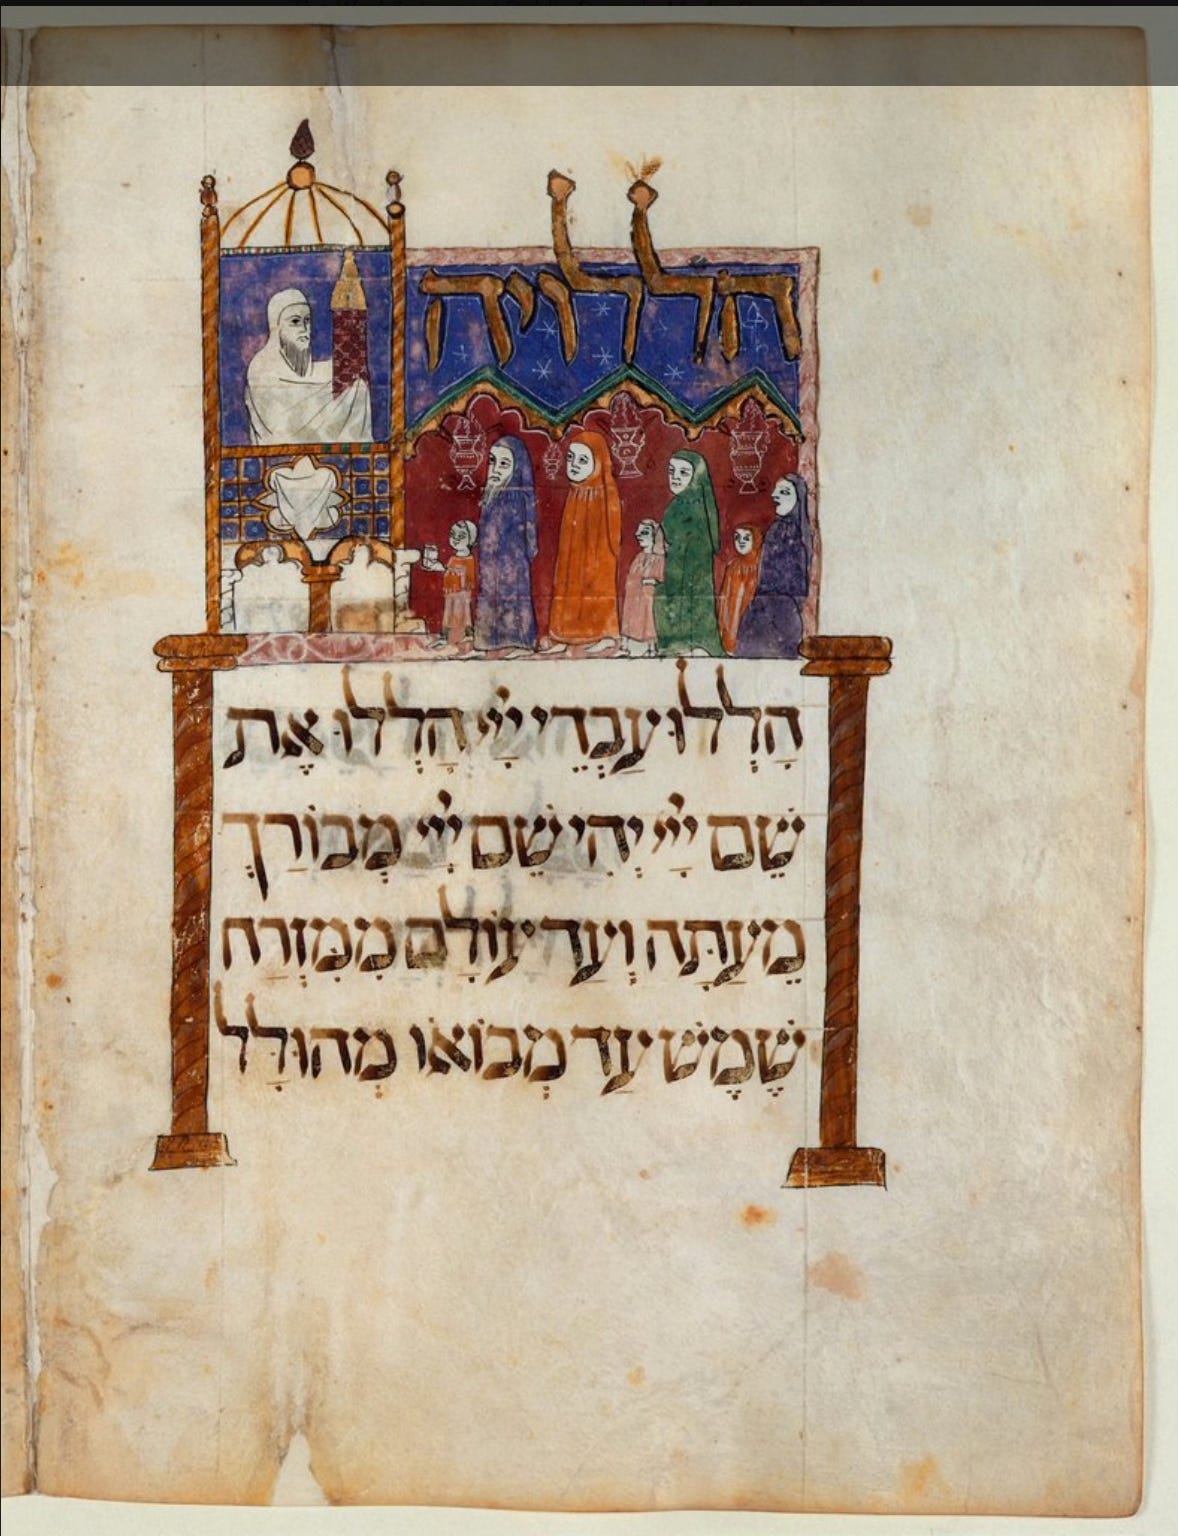 הללויה
הַלְלוּ עַבְדֵי יְיָ הַלְלוּ אֶת
שֵׁם יְיָ יְהִי שֵׁם יְיָ מְבוֹרָךְ
מֵעַתָּה וְעַד עוֹלָם מִמִּזְרַח
שֶׁמֶשׁ עַד מְבוֹאוֹ מְהוּלָּל